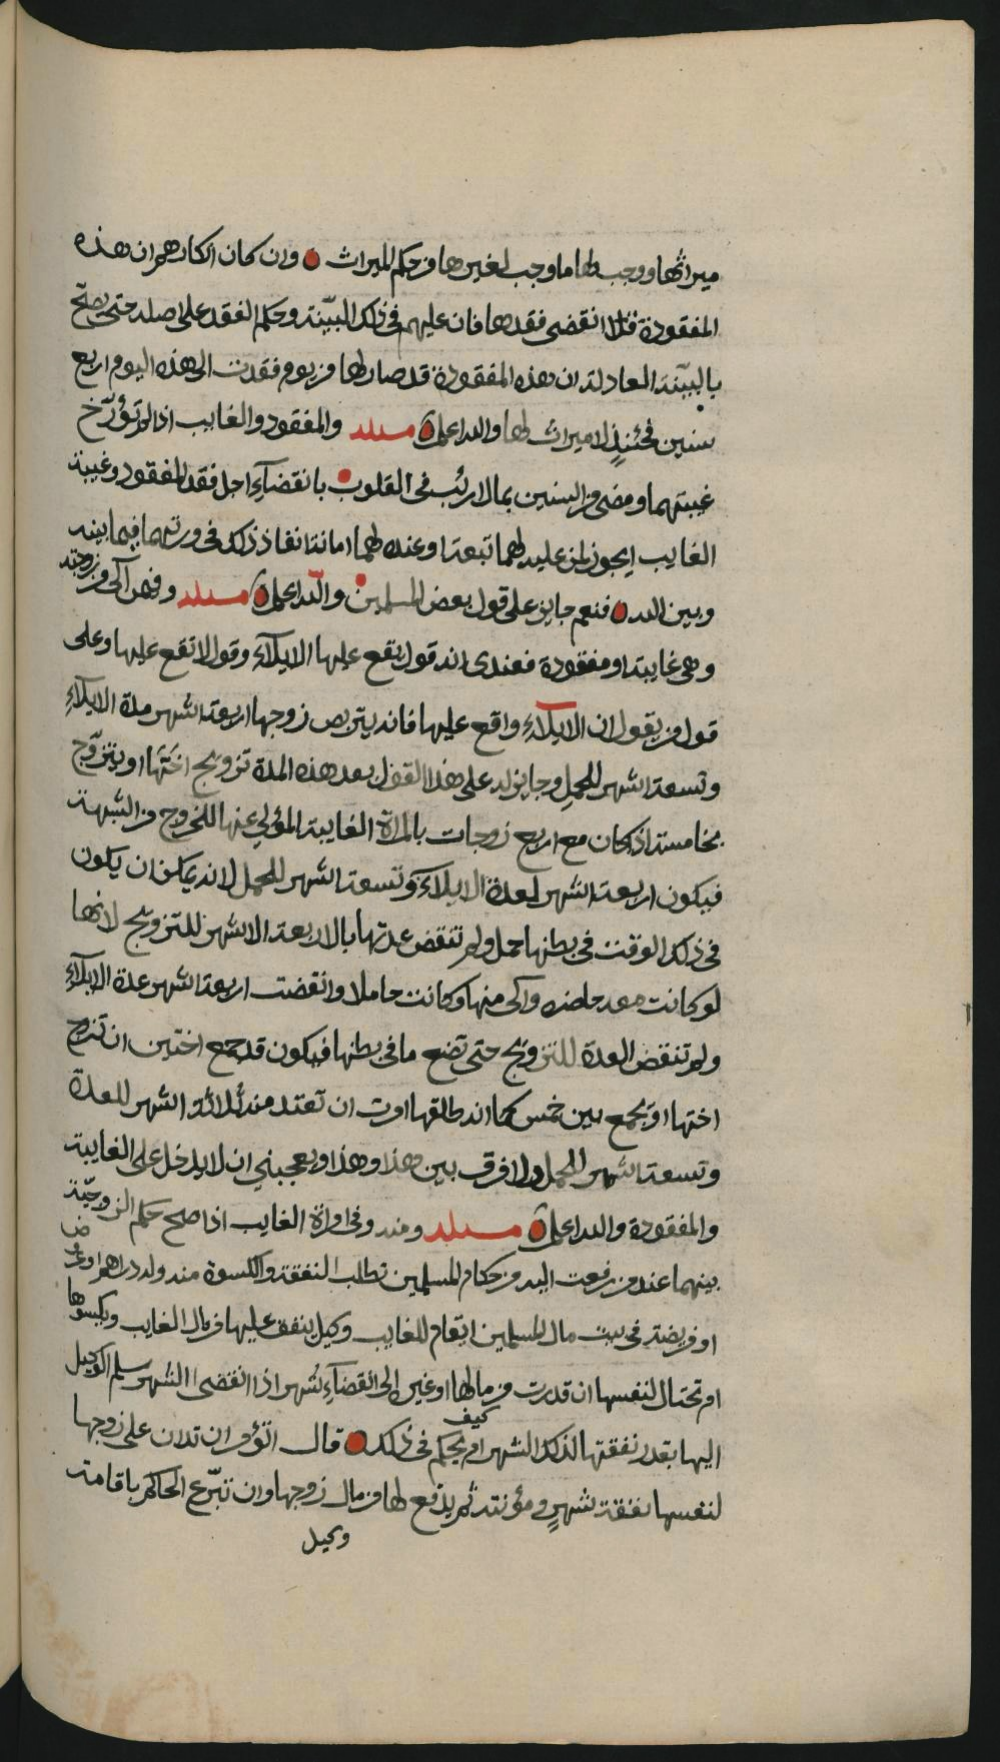 ميراثها ووجب لها ما وجب لغيرها من حكم الميراث وان كان انكارهم ان هذه
المفقودة قد انقضى فقدها فان عليهم في ذلك البيّنة وحكم الفقد على اصله حتى يصح
بالبيّنة العادلة ان هذه المفقودة قد صار لها من يوم فقدت الى هذه اليوم اربع
سنين فحينئذٍ لا ميراث لها والله اعلم مسئلة والمفقود والغايب اذا لم تؤرّخ
غيبتهما ومضى من السنين بما لا رئب في القلوب بانقضآء اجل فقد المفقود وغيبة
الغايب ايجوز لمن عليه لهما تبعة او عنده لهما امانة انفاذ ذلك في ورثتهما فيما بينه
وبين الله فنعم جايز على قول بعض المسلمين والله اعلم مسئلة وفيمن آلى من زوجته
وهى غايبة او مفقودة فعندى انه قول يقع عليها الايلآء وقول لا تقع عليها وعلى
قول من يقول ان الايلآء واقع عليها فانه يتربص زوجها اربعة اشهر مدة الايلآء
وتسعة اشهر للحمل وجايز له على هذا القول بعد هذه المدة تزويج اختها او يتزوّج
بخامسة اذا كان مع اربع زوجات بالمراة الغايبة المؤلي عنها للخروج من الشبهة
فيكون اربعة اشهر لعدة الايلآء وتسعة اشهر للحمل لانه يمكن ان يكون
في ذلك الوقت في بطنها حمل ولم تنقض عدتها بالاربعة الاشهر للتزويج لانها
لو كانت معه حاضره وآلى منها وكانت حاملا وانقضت اربعة اشهر عدة الايلآء
ولم تنقض العدة للتزويج حتى تضع ما في بطنها فيكون قد جمع اختين ان تزوج
اختها او يجمع بين خمس كما انه طلقها اورت ان تعتد منه ثلاثة اشهر للعدة
وتسعة اشهر للحمل ولا فرق بين هذا وهذا ويعجبني ان لا يدخل على الغايبة
والمفقودة والله اعلم مسئلة ومنه وفي امراة الغايب اذا صح حكم الزوجيّة
بينهما عند من رفعت اليه من حكام المسلمين تطلب النفقة والكسوة منه وله دراهم او عروض
او فريضة في بيت مال المسلمين ايقام للغايب وكيل ينفق عليها من مال الغايب ويكسوها
ام تحتال لنفسها ان قدرت من مالها او غيره الى انقضآء شهر اذا انقضى الشهر سلم الوكيل
اليها بقدر نفقتها لذلك الشهر ام كيف يحكم في ذلك قال تؤمر ان تدان على زوجها
لنفسها نفقة شهرٍ ومؤنته ثم يدفع لها من مال زوجها وان تبرّع الحاكم باقامة
وكيل